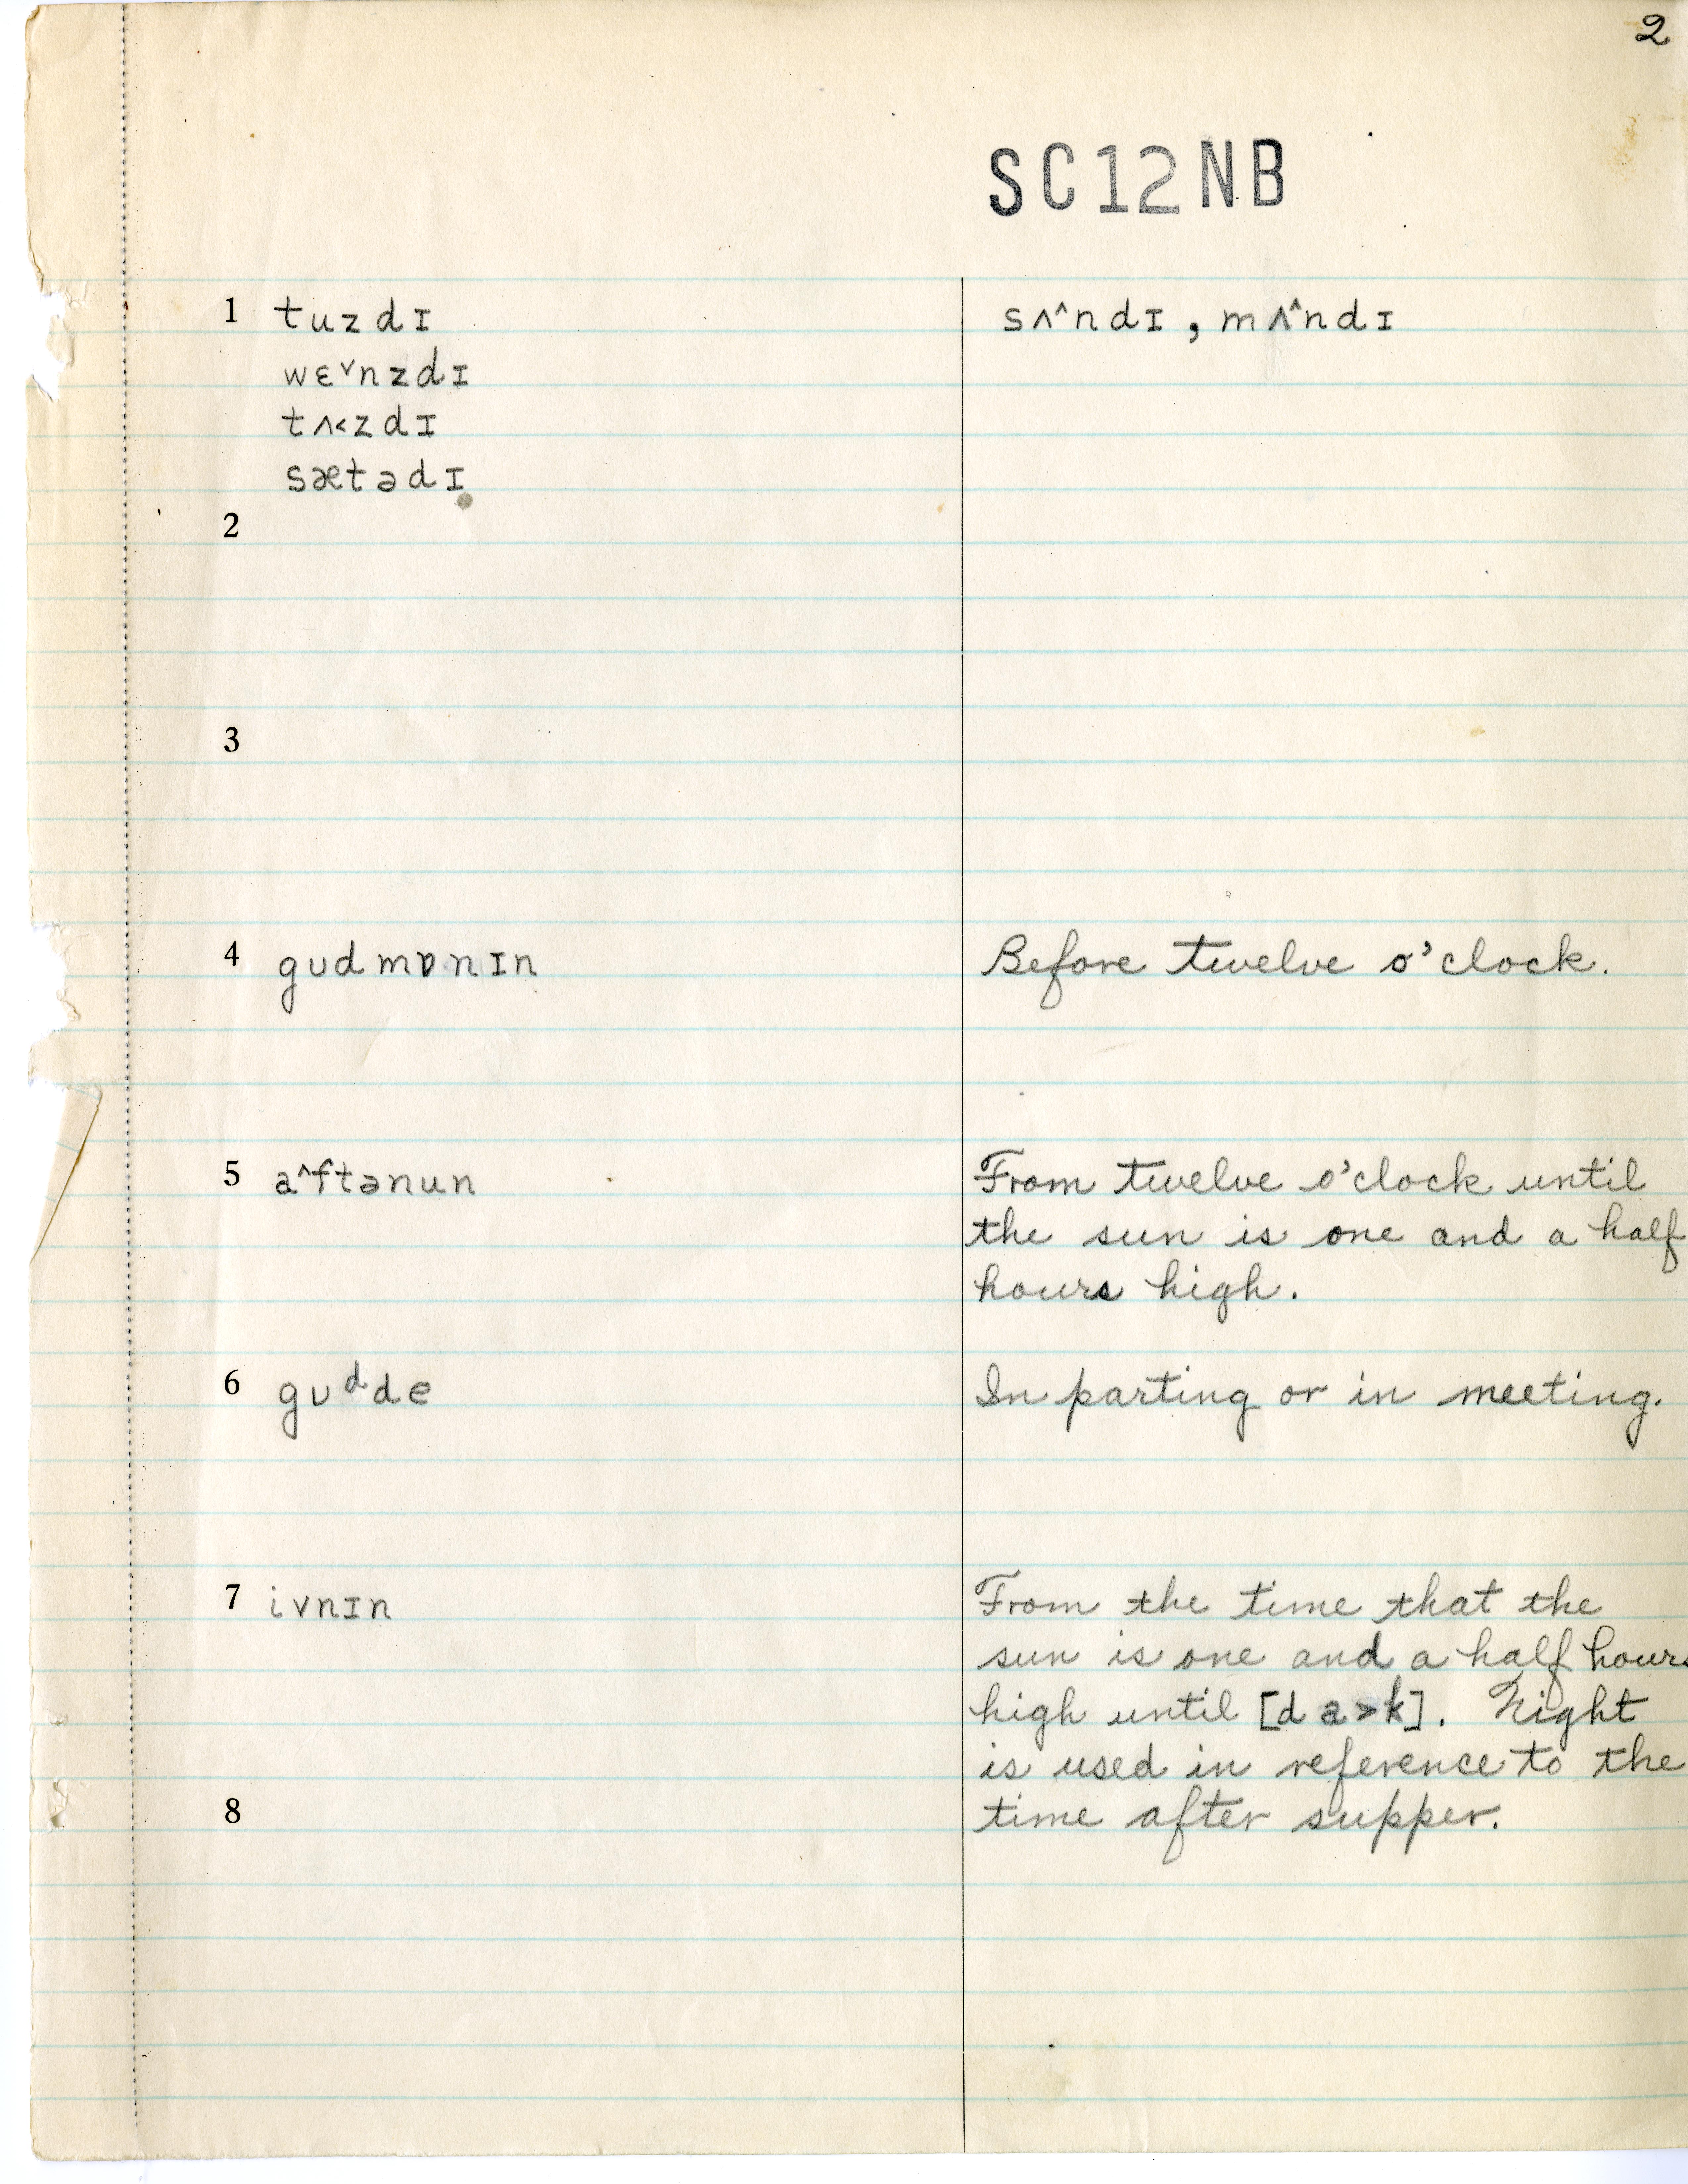 2
SC12NB
1 tuzdɪ
sʌ^ndɪ, mʌ^ndɪ
wɛ˅nzdɪ
tʌ<zdɪ
sætədɪ
2
3
4 gʊdmɒnɪn
Before twelve o'clock.
5 a^ftənun
From twelve o'clock until
the sun is one and a half
hours high.
6 gʊᵈde
In parting or in meeting.
7 ivnɪn
From the time that the
sun is one and a half hours
high until [da>k]. Night
is used in reference to the
8 time after supper.